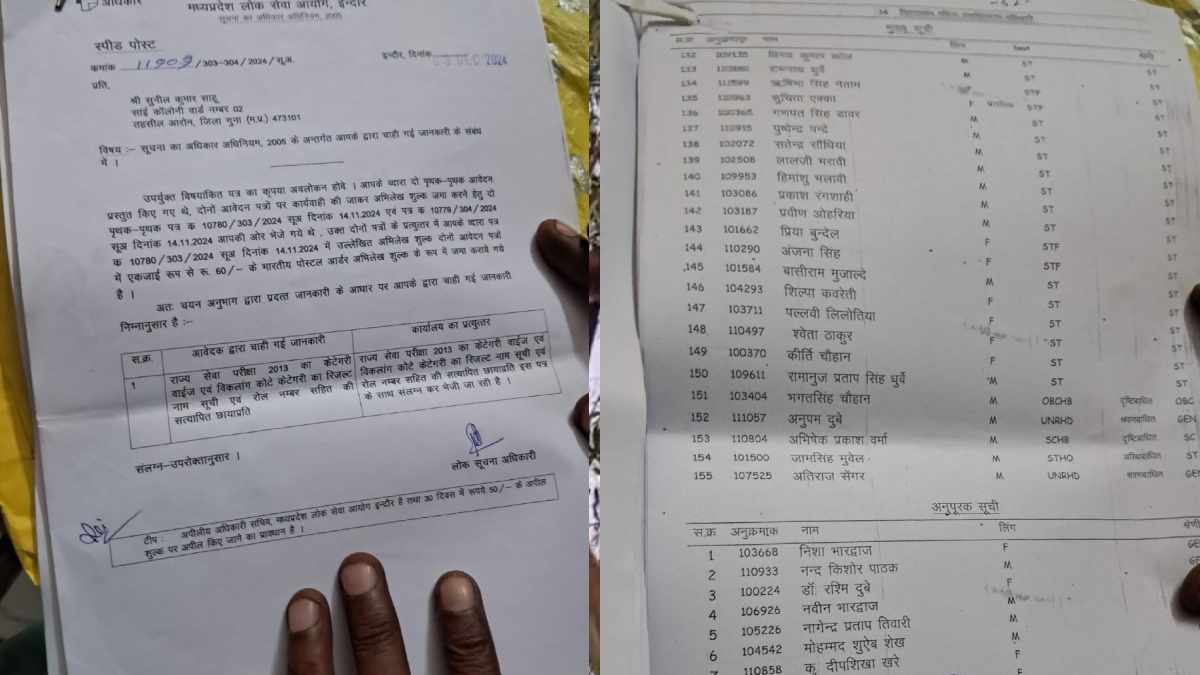 अधिकार
मध्यप्रदेश लोक सेवा आयोग, इन्दौर
सूचना का अधिकार अधिनियम, 2005
स्पीड पोस्ट
क्रमांक 11909/303-304/2024/सू.अ.
इन्दौर, दिनांक DEC 2024
प्रति,
श्री सुनील कुमार साहू
साई कॉलोनी वार्ड नम्बर 02
तहसील आरोन, जिला गुना (म.प्र.) 473101
विषय :- सूचना का अधिकार अधिनियम, 2005 के अन्तर्गत आपके द्वारा चाही गई जानकारी के संबंध
में ।
उपर्युक्त विषयांकित पत्र का कृपया अवलोकन होवे । आपके व्दारा दो पृथक-पृथक आवेदन
प्रस्तुत किए गए थे, दोनों आवेदन पत्रों पर कार्यवाही की जाकर अभिलेख शुल्क जमा करने हेतु दो
पृथक-पृथक पत्र क 10780/303/2024 सूअ दिनांक 14.11.2024 एवं पत्र क 10779/304/2024
सूअ दिनांक 14.11.2024 आपकी ओर भेजे गये थे , उक्त दोनों पत्रों के प्रत्युत्तर में आपके व्दारा पत्र
क 10780/303/2024 सूअ दिनांक 14.11.2024 में उल्लेखित अभिलेख शुल्क दोनों आवेदन पत्रों
में एकजाई रूप से रू. 60/- के भारतीय पोस्टल आर्डर अभिलेख शुल्क के रूप में जमा कराये गये
है ।
अतः चयन अनुभाग द्वारा प्रदत्त जानकारी के आधार पर आपके द्वारा चाही गई जानकारी
निम्नानुसार है :-
स.क्र. आवेदक द्वारा चाही गई जानकारी कार्यालय का प्रत्युत्तर
1 राज्य सेवा परीक्षा 2013 का केटेगरी राज्य सेवा परीक्षा 2013 का केटेगरी वाईज एवं
वाईज एवं विकलांग कोटे केटेगरी का रिजल्ट विकलांग कोटे केटेगरी का रिजल्ट नाम सूची एवं
नाम सूची एवं रोल नम्बर सहित की रोल नम्बर सहित की सत्यापित छायाप्रति इस पत्र
सत्यापित छायाप्रति के साथ संलग्न कर भेजी जा रही है ।
संलग्न-उपरोक्तानुसार ।
लोक सूचना अधिकारी
टीप : अपीलीय अधिकारी सचिव, मध्यप्रदेश लोक सेवा आयोग इन्दौर है तथा 30 दिवस में रूपये 50/- के अपील
शुल्क पर अपील किए जाने का प्रावधान है ।
मुख्य सूची
स.क्र. अनुक्रमांक नाम लिंग श्रेणी
132 M ST ST
133 धुर्वे M ST ST
134 सिंह नेताम M STF ST
135 सुचिता एक्का F STF ST
136 100365 गणपत सिंह डावर M ST ST
137 110915 पुष्पेन्द्र M ST ST
138 102072 सतेन्द्र M ST ST
139 102508 लालजी भरावी M ST ST
140 109953 हिमांशु भलावी M ST ST
141 103086 प्रकाश रंगशाही M ST ST
142 103187 प्रवीण ओहरिया M ST ST
143 101662 प्रिया बुन्देल F STF ST
144 110290 अंजना सिंह F STF ST
145 101584 बासीराम मुजाल्दे M ST ST
146 104293 शिल्पा कवरेती F ST ST
147 103711 पल्लवी लिलोतिया F ST ST
148 110497 श्वेता ठाकुर F ST ST
149 100370 कीर्ति चौहान F ST ST
150 109611 रामानुज प्रताप सिंह धुर्वे M ST ST
151 103404 भगतसिंह चौहान M OBCHB दृष्टिबाधित OBC
152 111057 अनुपम दुबे M UNRHD श्रवणबाधित GEN
153 110804 अभिषेक प्रकाश वर्मा M SCHB दृष्टिबाधित SC
154 101500 जामसिंह मुवेल M STHO अस्थिबाधित ST
155 107525 अतिराज सेंगर M UNRHD श्रवणबाधित GEN
अनुपूरक सूची
स.क्र अनुक्रमांक नाम लिंग श्रेणी
1 103668 निशा भारद्वाज F GEN
2 110933 नन्द किशोर पाठक M GE
3 100224 डॉ रश्मि दुबे F
4 106926 नवीन भारद्वाज M
5 105226 नागेन्द्र प्रताप तिवारी M
6 104542 मोहम्मद शुऐब शेख M
7 110858 कु दीपशिखा खरे F